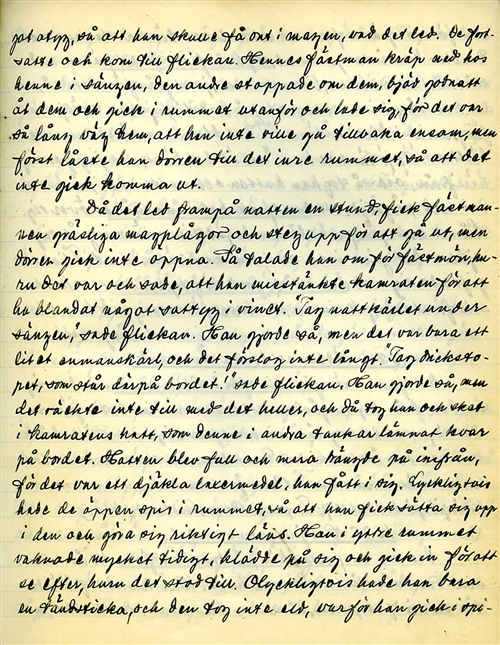 got otyg, så att han skulle få ont i magen, vad det led. De fort-
satte och kom till flickan. Hennes fästman kröp ned hos
henne i sängen, den andre stoppade om dem, bjöd godnatt
åt dem och gick i rummet utanför och lade sig, för det var
så lång väg hem, att han inte ville gå tillbaka ensam, men
först låste han dörren till det inre rummet, så att det
inte gick komma ut.
Då det led frampå natten en stund, fick fästman-
nen gräsliga magplågor och steg upp för att gå ut, men
dörren gick inte öppna. Så talade han om för fästmön, hu-
ru det var och sade, att han misstänkte kamraten för att
ha blandat något sattyg i vinet. "Tag nattkärlet under
sängen," sade flickan. Han gjorde så, men det var bara ett
litet enmanskärl, och det förslog inte långt. "Tag dricksto-
pet, som står där på bordet!" sade flickan. Han gjorde så, men
det räckte inte till med det heller, och då tog han och sket
i kamratens hatt, som denne i andra tankar lämnat kvar
på bordet. Hatten blev full och mera trängde på inifrån,
för det var ett djäkla laxermedel, han fått i sig. Lyckligtvis
hade de öppen spis i rummet, så att han fick sätta sig upp
i den och göra sig riktigt läns. Han i yttre rummet
vaknade mycket tidigt, klädde på sig och gick in för att
se efter, huru det stod till. Olyckligtvis hade han bara
en tändsticka, och den tog inte eld, varför han gick i spi-